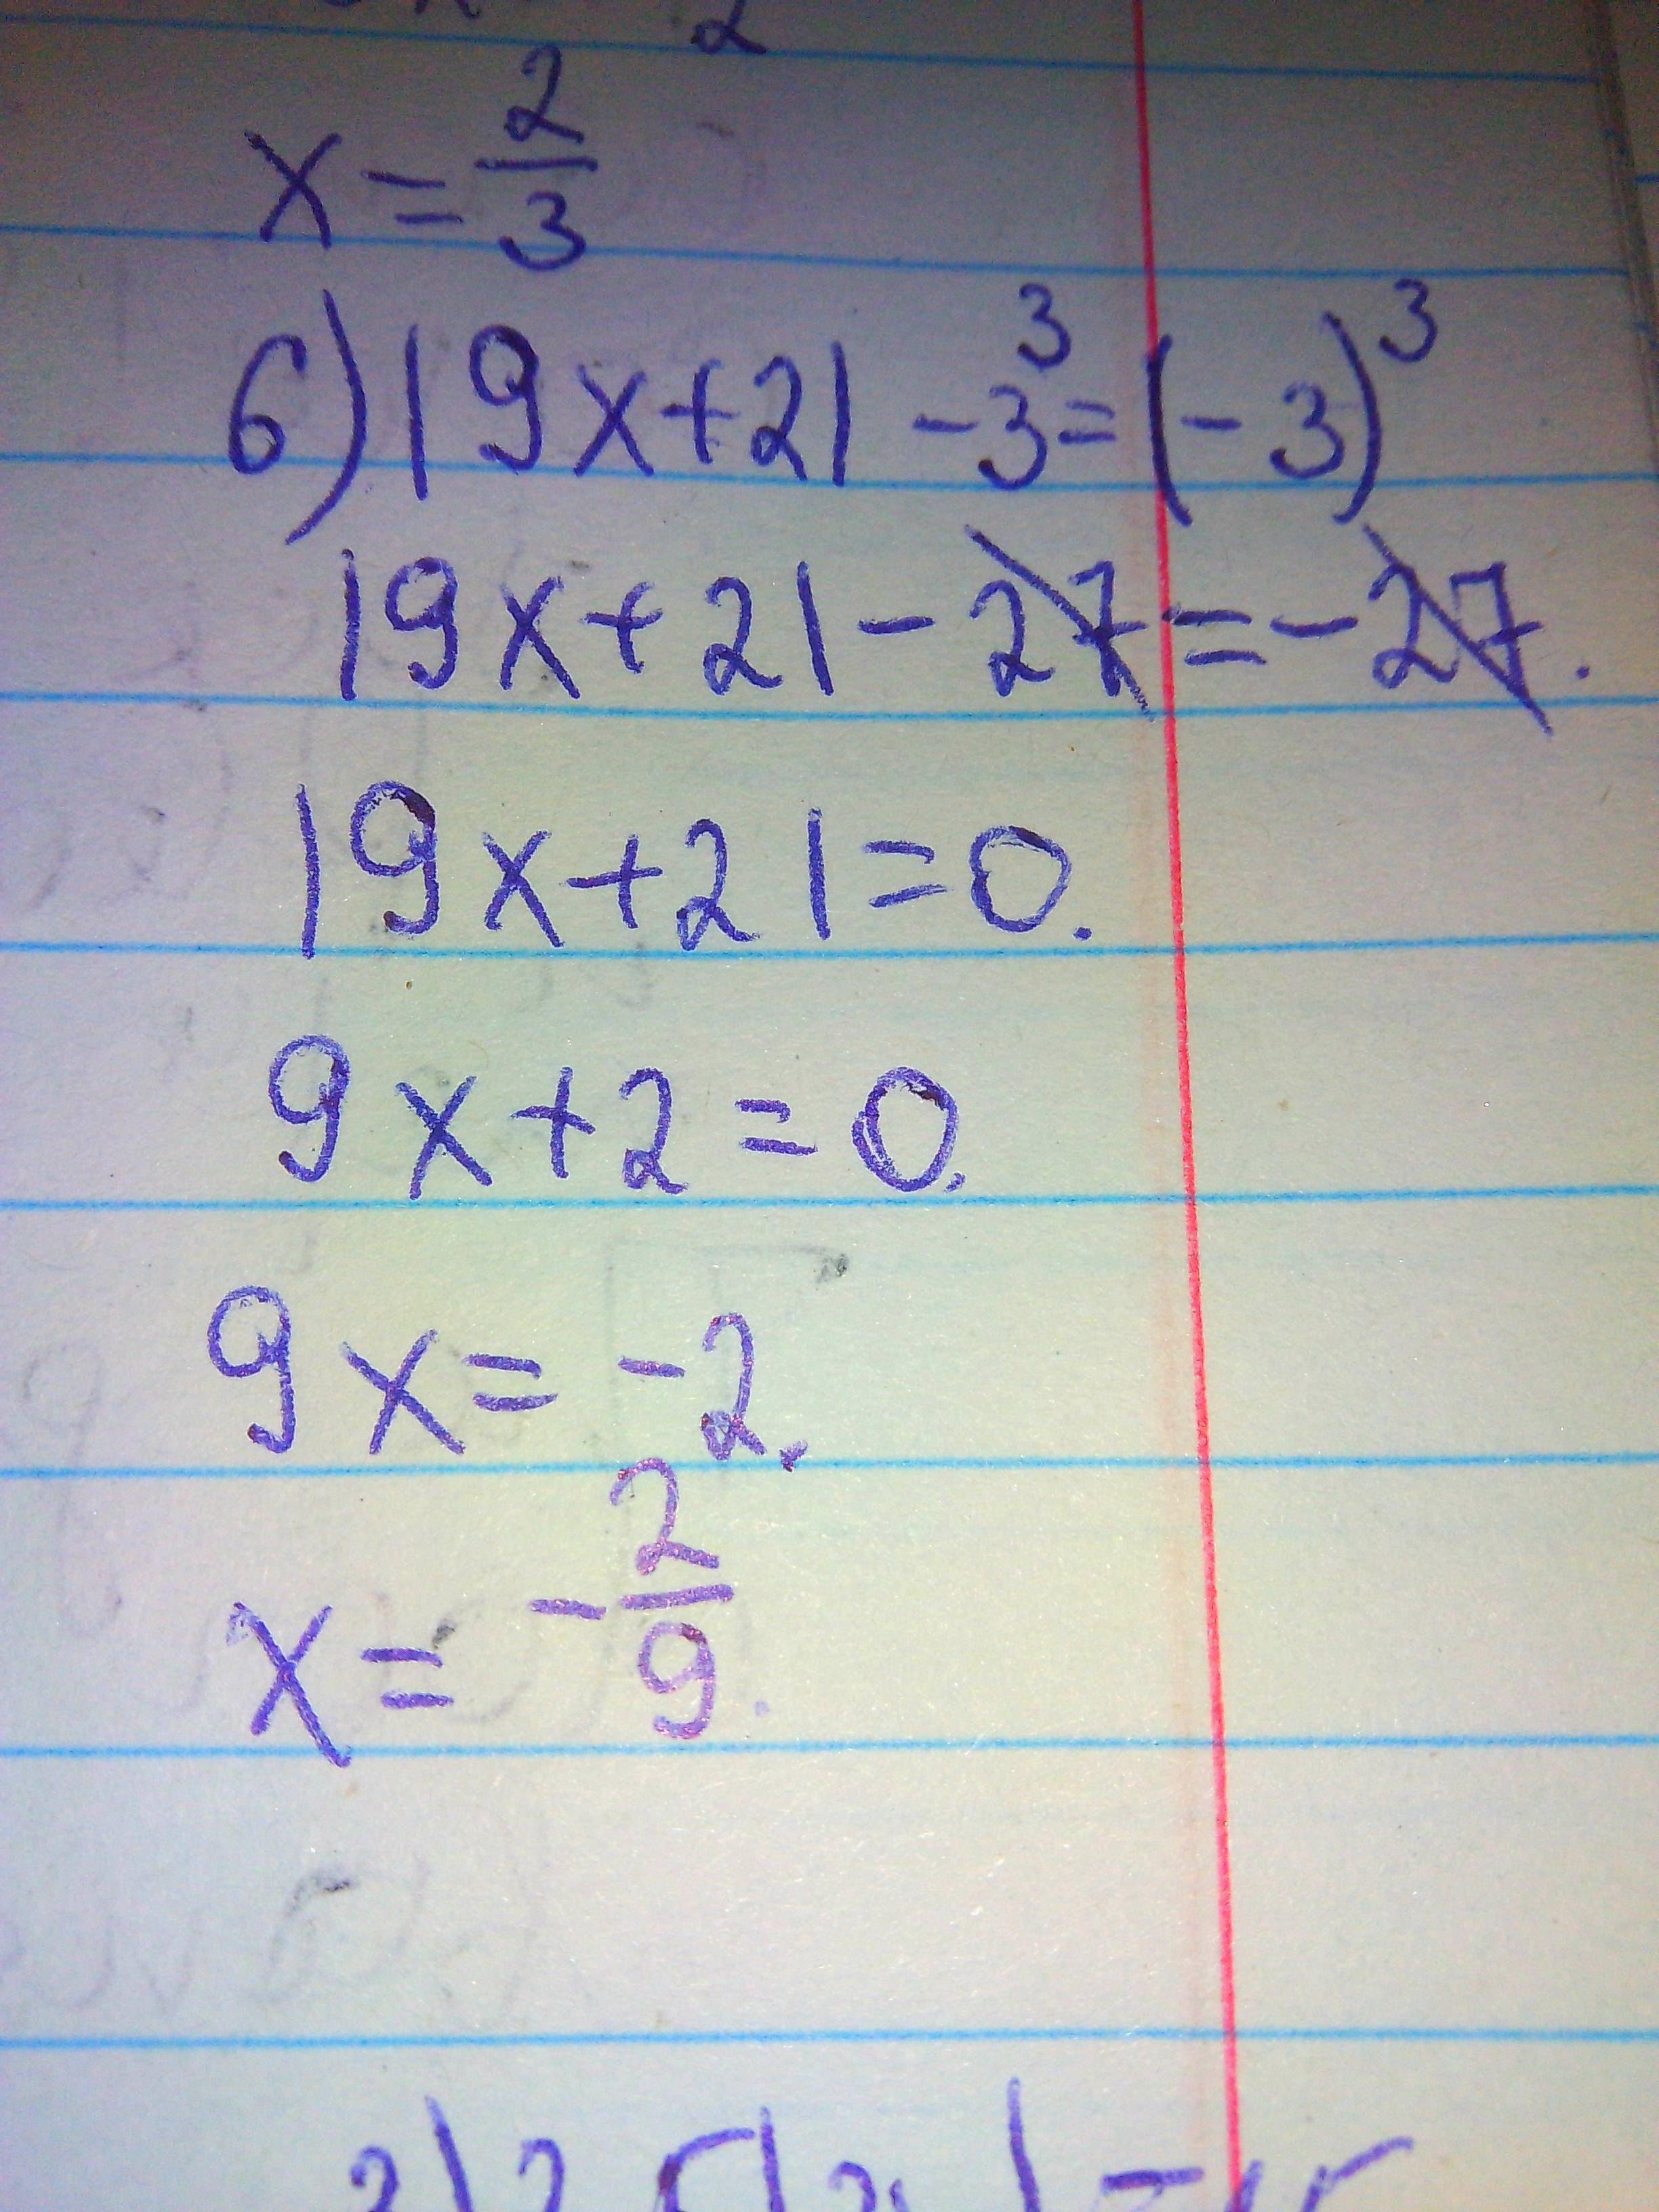 x = 2/3
6) |9x+2| - 3³ = (-3)³
|9x+2| - 27 = -27.
|9x+2| = 0.
9x+2 = 0.
9x = -2.
x = -2/9.